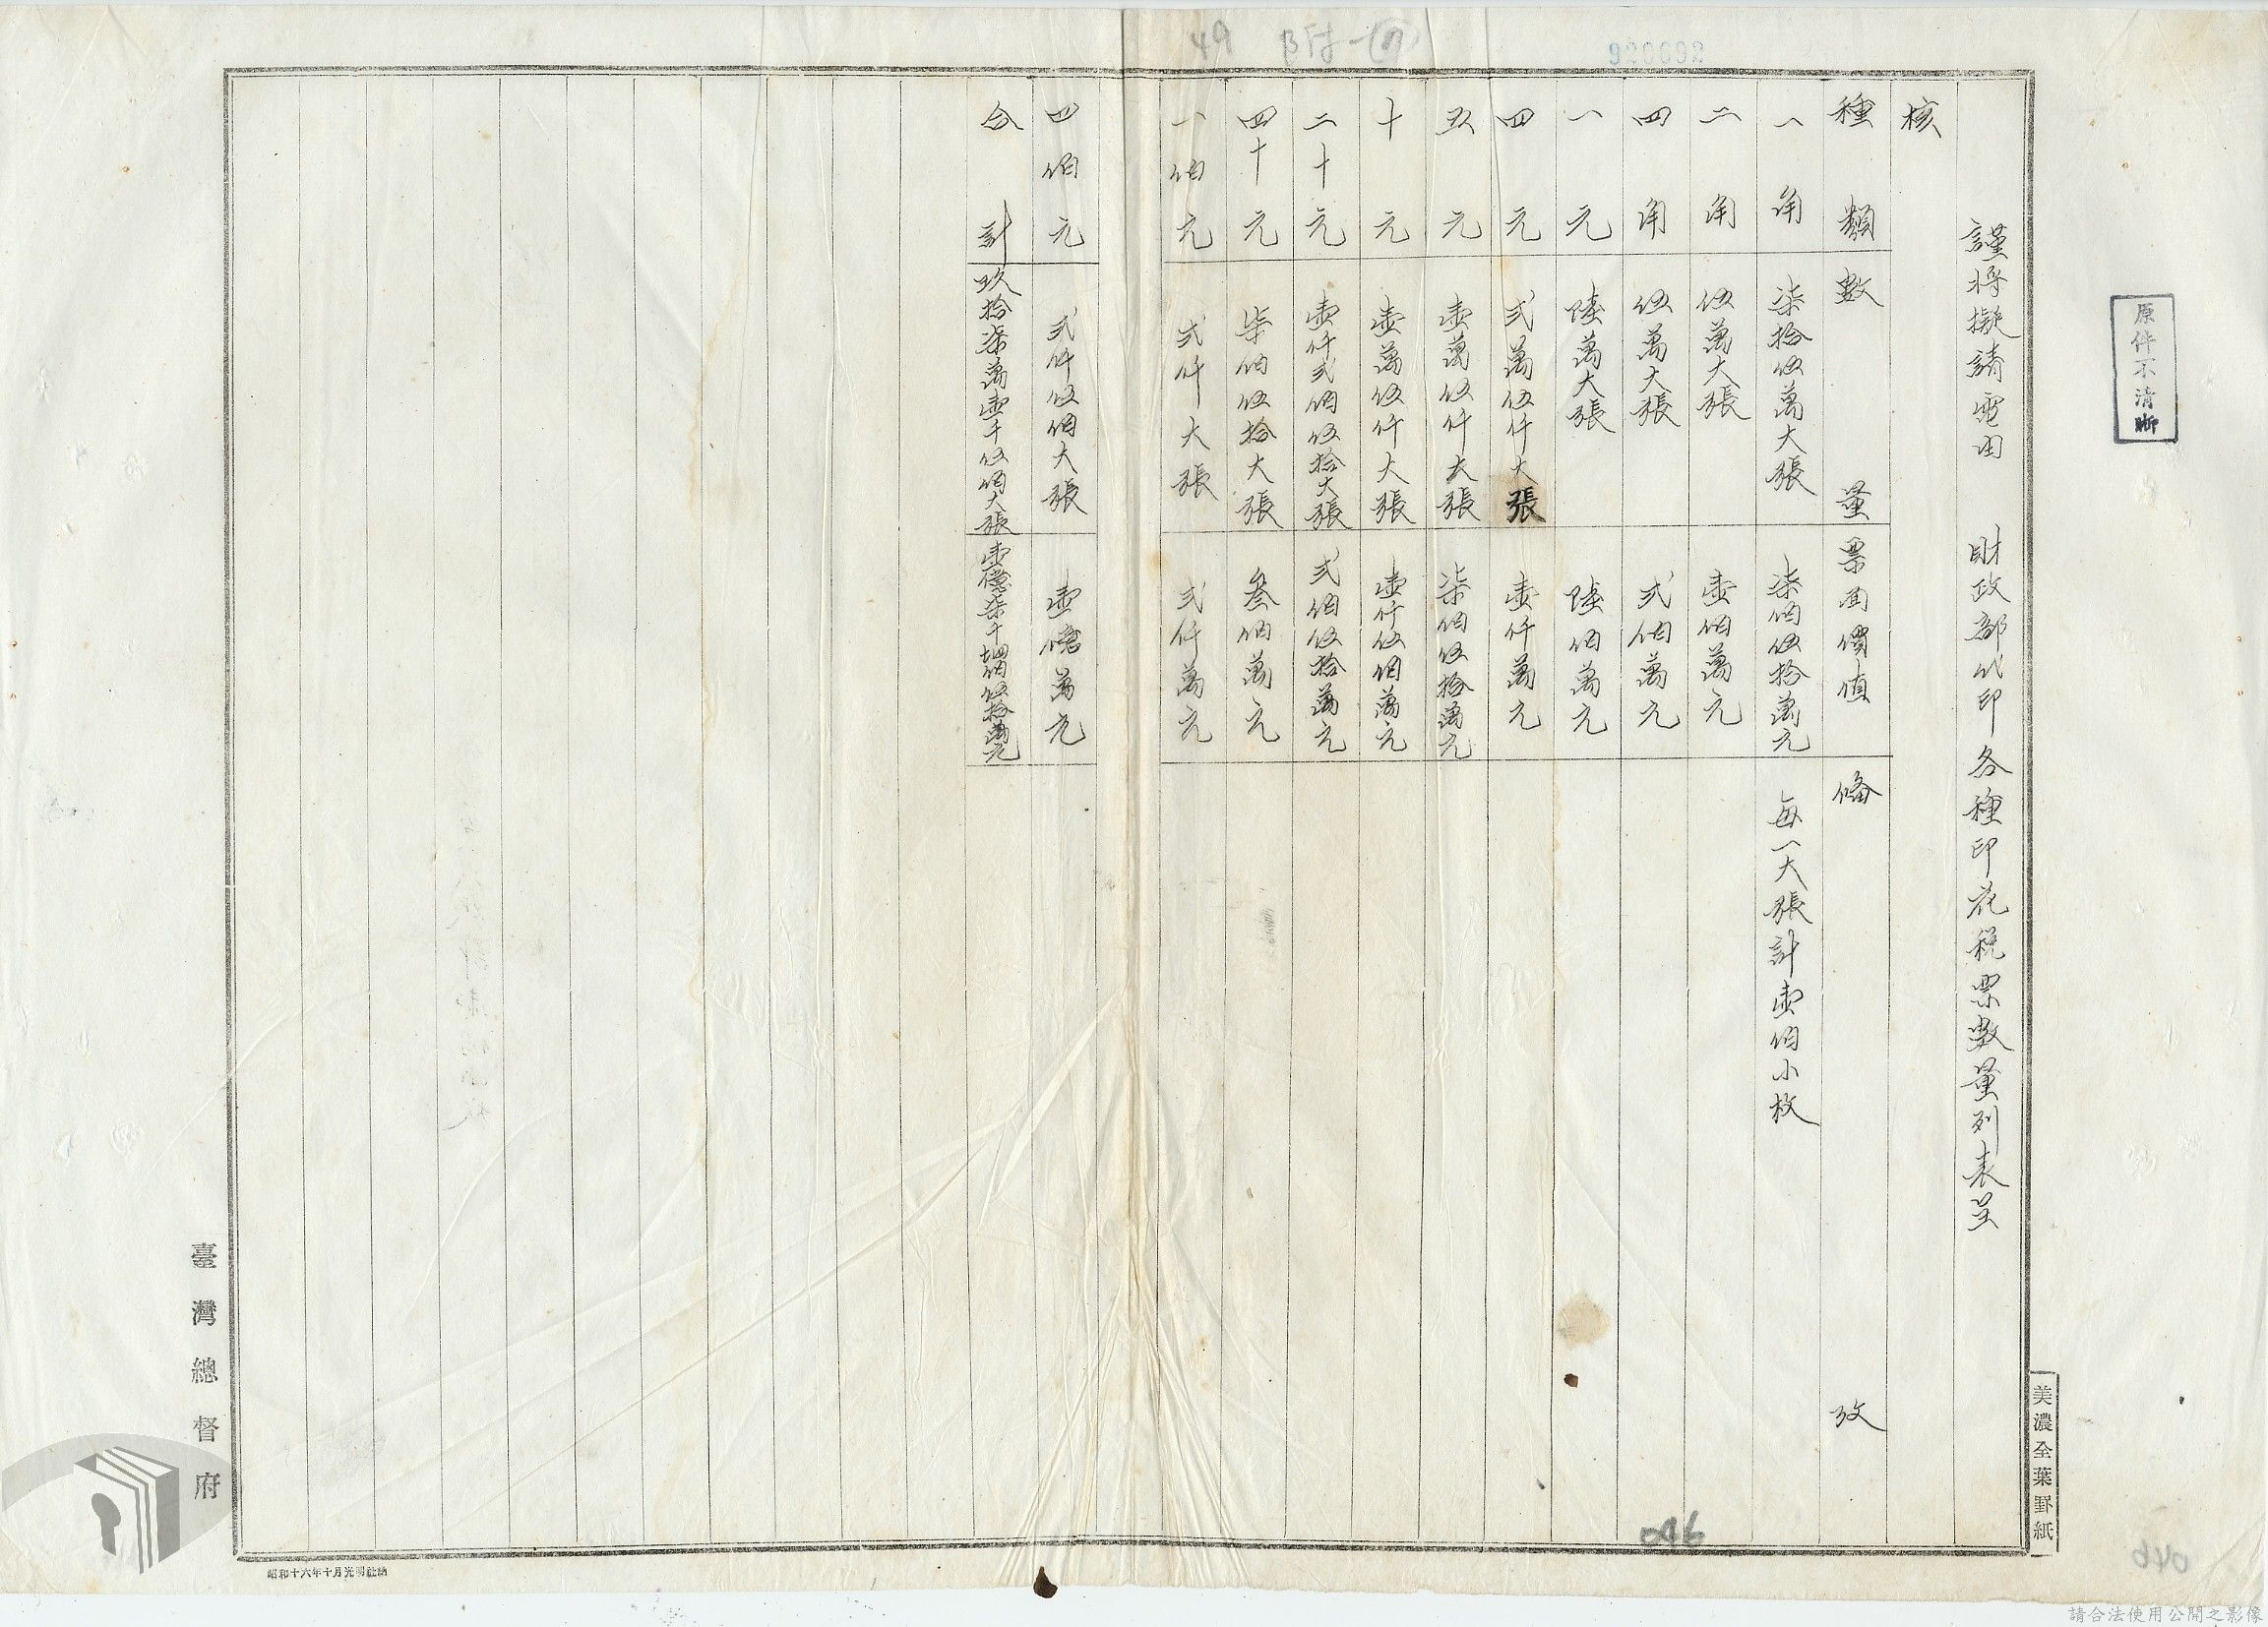 49 附一(八)
920692
原件不清晰
謹將擬請電由 財政部代印各種印花稅票數量列表呈
核
種類 數量 票面價值 備攷
一角 柒拾伍萬大張 柒佰伍拾萬元 每一大張計壹佰小枚
二角 伍萬大張 壹佰萬元
四角 伍萬大張 弍佰萬元
一元 陸萬大張 陸佰萬元
四元 弍萬伍仟大張 壹仟萬元
五元 壹萬伍仟大張 柒佰伍拾萬元
十元 壹萬伍仟大張 壹仟伍佰萬元
二十元 壹仟弍佰伍拾大張 弍佰伍拾萬元
四十元 柒佰伍拾大張 叁佰萬元
一佰元 弍仟大張 弍仟萬元
四佰元 弍仟伍佰大張 壹億萬元
合計 玖拾柒萬壹千伍佰大張 壹億柒千四佰伍拾萬元
美濃全葉罫紙
臺灣總督府
昭和十六年十月光明社納
046
046
請合法使用公開之影像